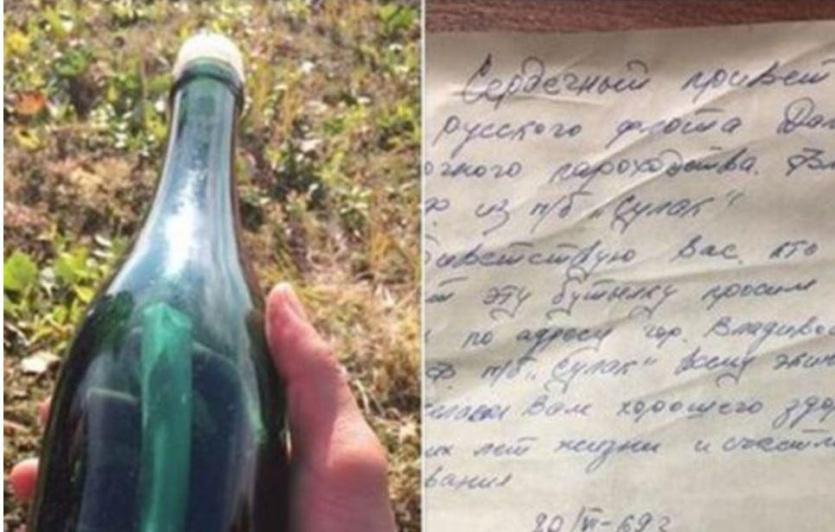 Сердечный привет
русского флота Дал
очного пароходства. В
из т/б „Сулак"
иветствую Вас, кто
ит эту бутылку просим
по адресу гор. Владиво
т/б „Сулак" всему экип
елаем Вам хорошего здор
их лет жизни и счастли
вания
20/VI-69г